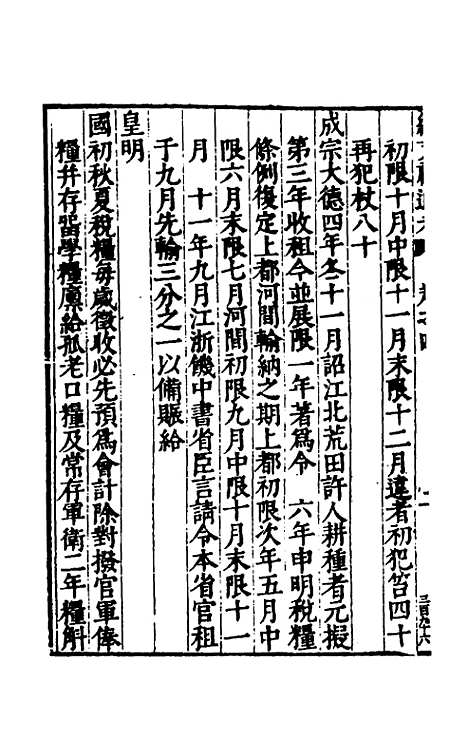 初限十月中限十一月末限十二月違者初犯笞四十
再犯杖八十
成宗大德四年冬十一月詔江北荒田許人耕種者元擬
第三年收租今並展限一年著爲令　六年申明稅糧
條例復定上都河間輸納之期上都初限次年五月中
限六月末限七月河間初限九月中限十月末限十一
月　十一年九月江浙饑中書省臣言請令本省官租
于九月先輸三分之一以備賑給
皇明
國初秋夏稅糧每歲徵收必先預爲會計除對撥官軍俸
糧幷存留學糧廩給孤老口糧及常存軍衛二年糧斛